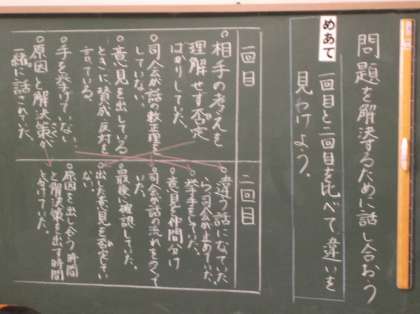 問題を解決するために話し合おう
めあて
一回目と二回目を比べて、違いを
見つけよう。
一回目
○相手の考えを
理解せず否定
ばかりしていた。
○司会が話の整理を
していない。
○意見を出している
ときに賛成反対を
言っている。
○手を挙げていない
○原因と解決策が
一緒に話されていた。
二回目
○違う話になっていた
ら、司会が止めていた。
○挙手をしていた。
○意見を仲間分け
○司会が話の流れをつくって
○最後に確認していた。
○出した意見を否定してい
ない。
○原因を出し合う時間
と解決策を出す時間
を分けていた。